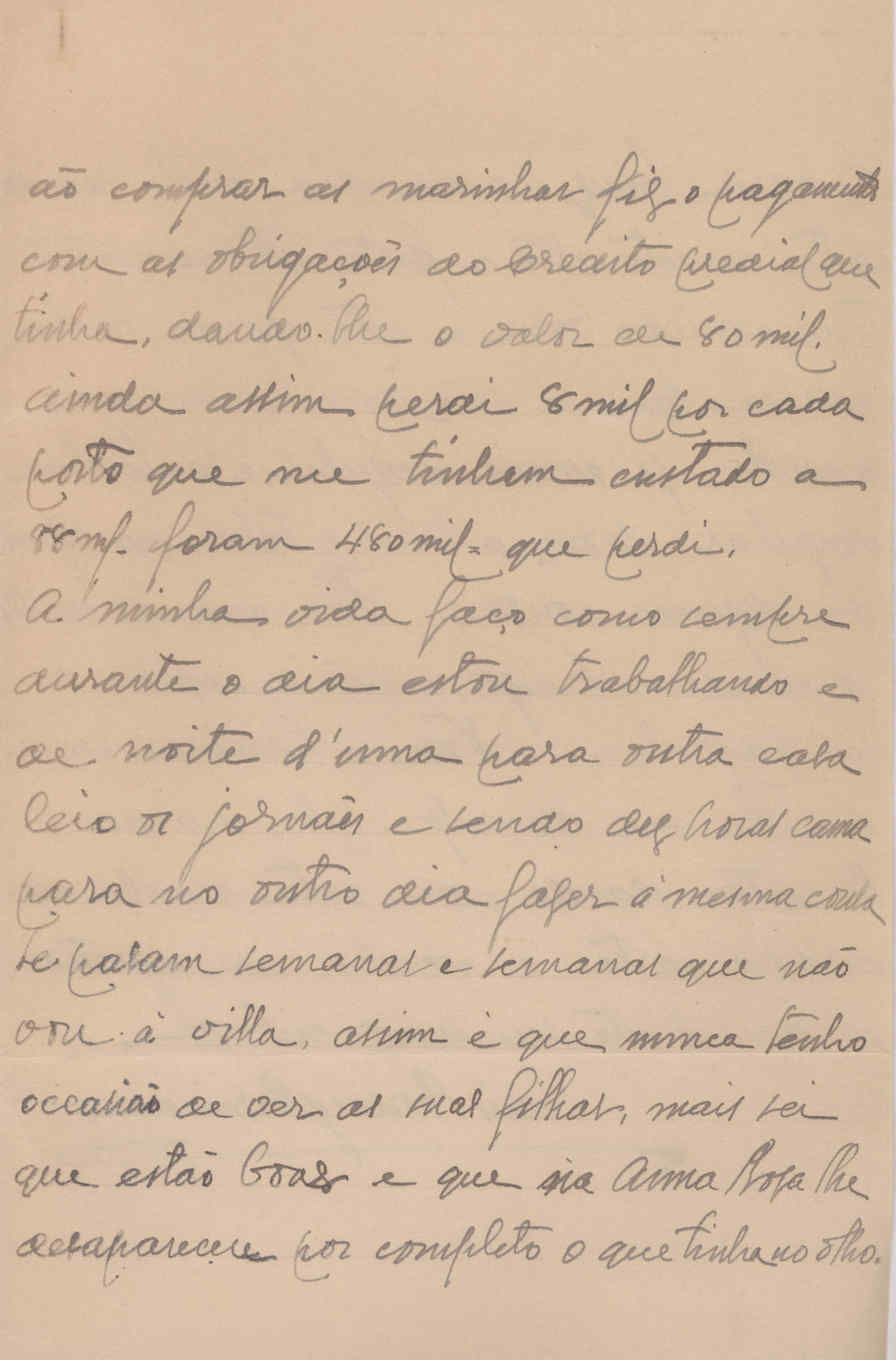 ao comprar as marinhas fiz o pagamento
com as obrigações do Credito predial que
tinha, dando-lhe o valor de 80 mil.
ainda assim perdi 8 mil por cada
porto que me tinham custado a
88 ml. foram 480 mil= que perdi.
A minha vida faço como sempre
durante o dia estou trabalhando e
de noite d'uma para outra casa
leio os jornaes e sendo dez horas cama
para no outro dia fazer a mesma cousa
se pasam semanas e semanas que não
vou á villa, asim é que nunca tenho
occasião de ver as suas filhas, mais sei
que estão boas e que na Anna Rosa lhe
desapareceu por completo o que tinha no olho.